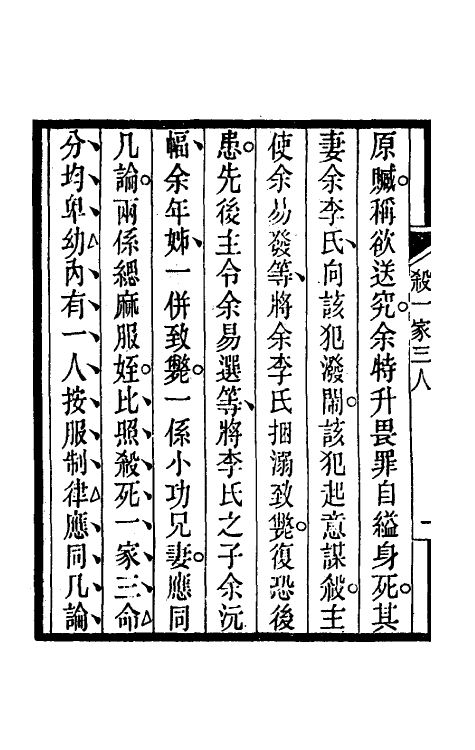 殺一家三人
一
原贓稱欲送究余特升畏罪自縊身死其
妻余李氏向該犯潑鬧該犯起意謀殺主
使余易發等將余李氏捆溺致斃復恐後
患先後主令余易選等將李氏之子余沅
幅余年姊一併致斃一係小功兄妻應同
凡論兩係緦麻服姪比照殺死一家三命
分均卑幼內有一人按服制律應同凡論